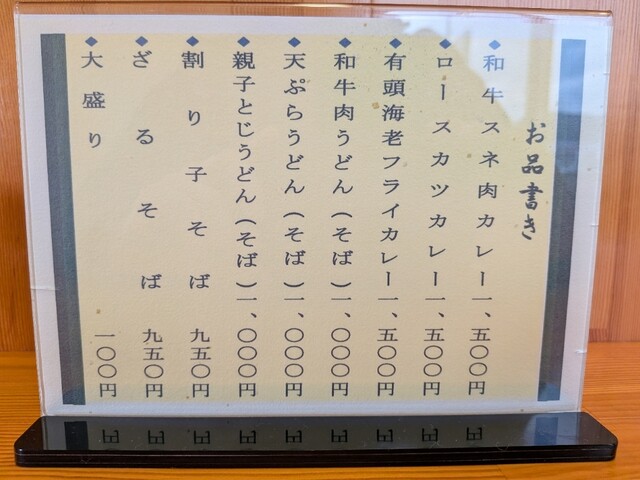 お品書き
◆和牛スネ肉カレー一、五〇〇円
◆ロースカツカレー一、五〇〇円
◆有頭海老フライカレー一、五〇〇円
◆和牛肉うどん(そば)一、〇〇〇円
◆天ぷらうどん(そば)一、〇〇〇円
◆親子とじうどん(そば)一、〇〇〇円
◆割り子そば 九五〇円
◆ざるそば 九五〇円
◆大盛り 一〇〇円